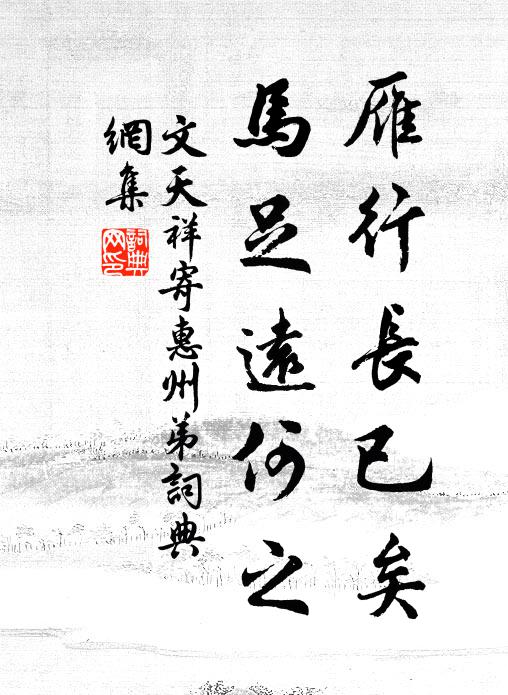 雁行長已矣
馬足遠何之
文天祥寄惠州弟詞典
網集
詞典
网印